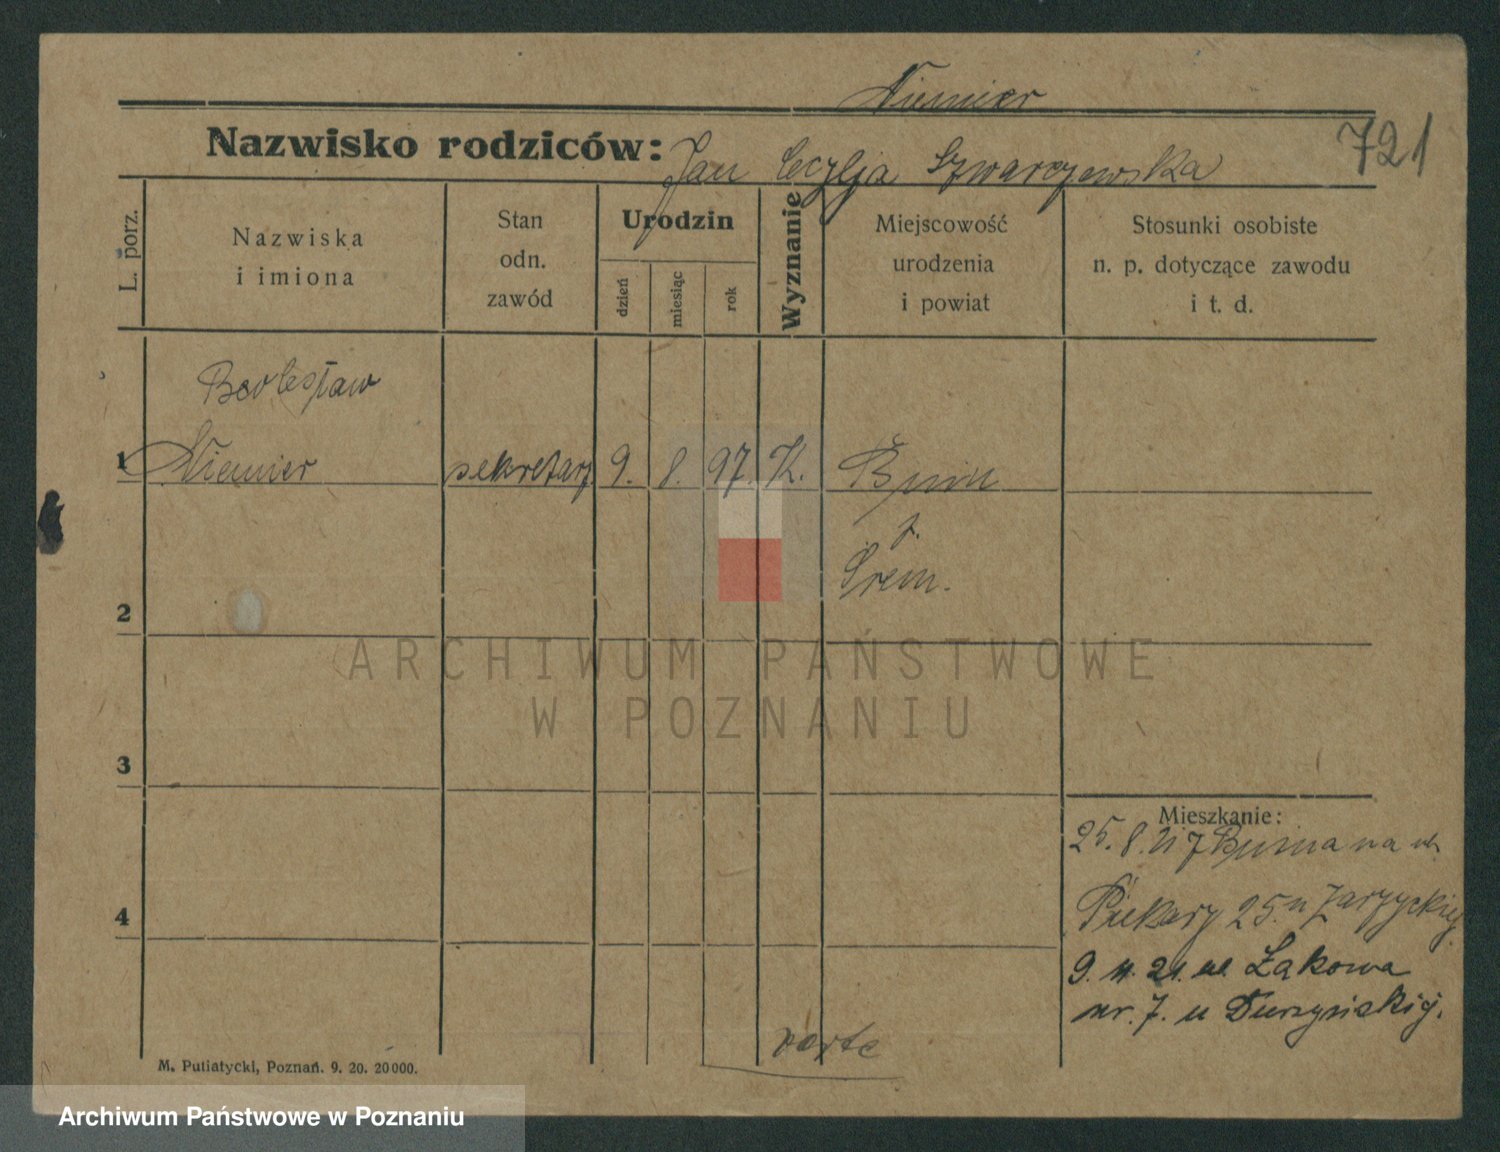 Niemier
Nazwisko rodziców: Jan Cecylja Szwarczewska
721
L. porz.
Nazwiska
i imiona
Stan
odn.
zawód
Urodzin
dzień
miesiąc
rok
Wyznanie
Miejscowość
urodzenia
i powiat
Stosunki osobiste
n. p. dotyczące zawodu
i t. d.
Bolesław
1 Niemier sekretarz 9. 8. 97. K. Bnin
p.
Śrem.
2
ARCHIWUM PAŃSTWOWE
W POZNANIU
3
Mieszkanie:
25. 8. 21 z Bnina na ul.
4
Piekary 25. u Zarzyckiej
9. 11. 21. ul. Łąkowa
nr. 7. u Turzyńskiej.
M. Putiatycki, Poznań. 9. 20. 20000.
Archiwum Państwowe w Poznaniu